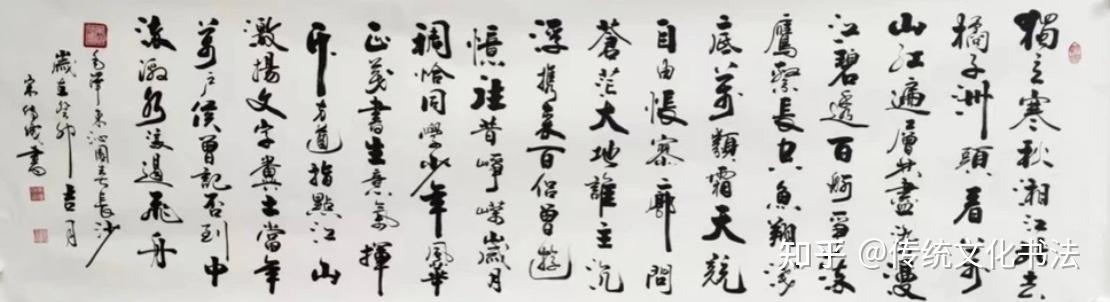 獨立寒秋湘江北去
橘子洲頭看萬
山紅遍層林盡染漫
江碧透百舸爭流
鷹擊長空魚翔淺
底萬類霜天競
自由悵寥廓問
蒼茫大地誰主沉
浮攜來百侶曾遊
憶往昔崢嶸歲月
稠恰同學少年風華
正茂書生意氣揮
斥方遒指點江山
激揚文字糞土當年
萬戶侯曾記否到中
流激水浪遏飛舟
毛澤東沁園春長沙
歲在癸卯吉月
宋書
知乎 @传统文化书法